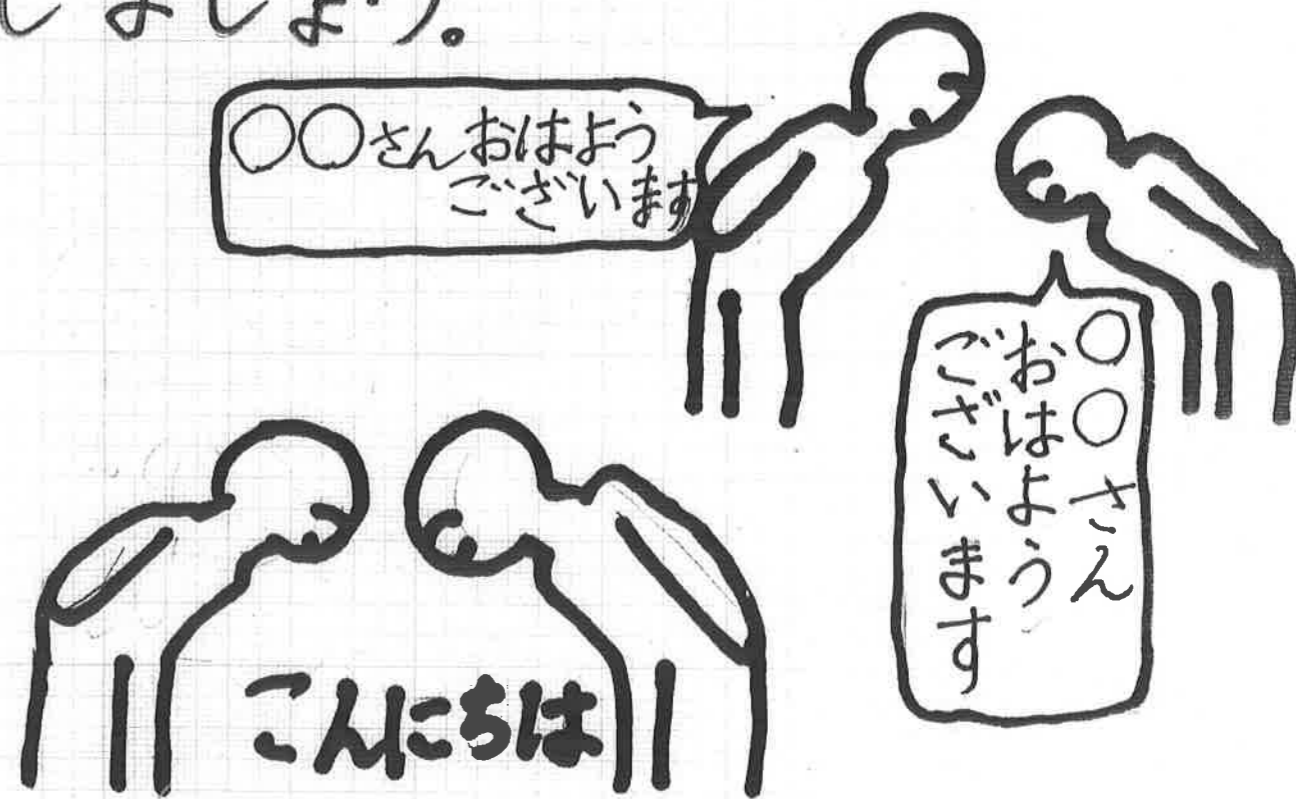 しましょう。
○○さんおはよう
ございます
○○さん
おはよう
ございます
こんにちは